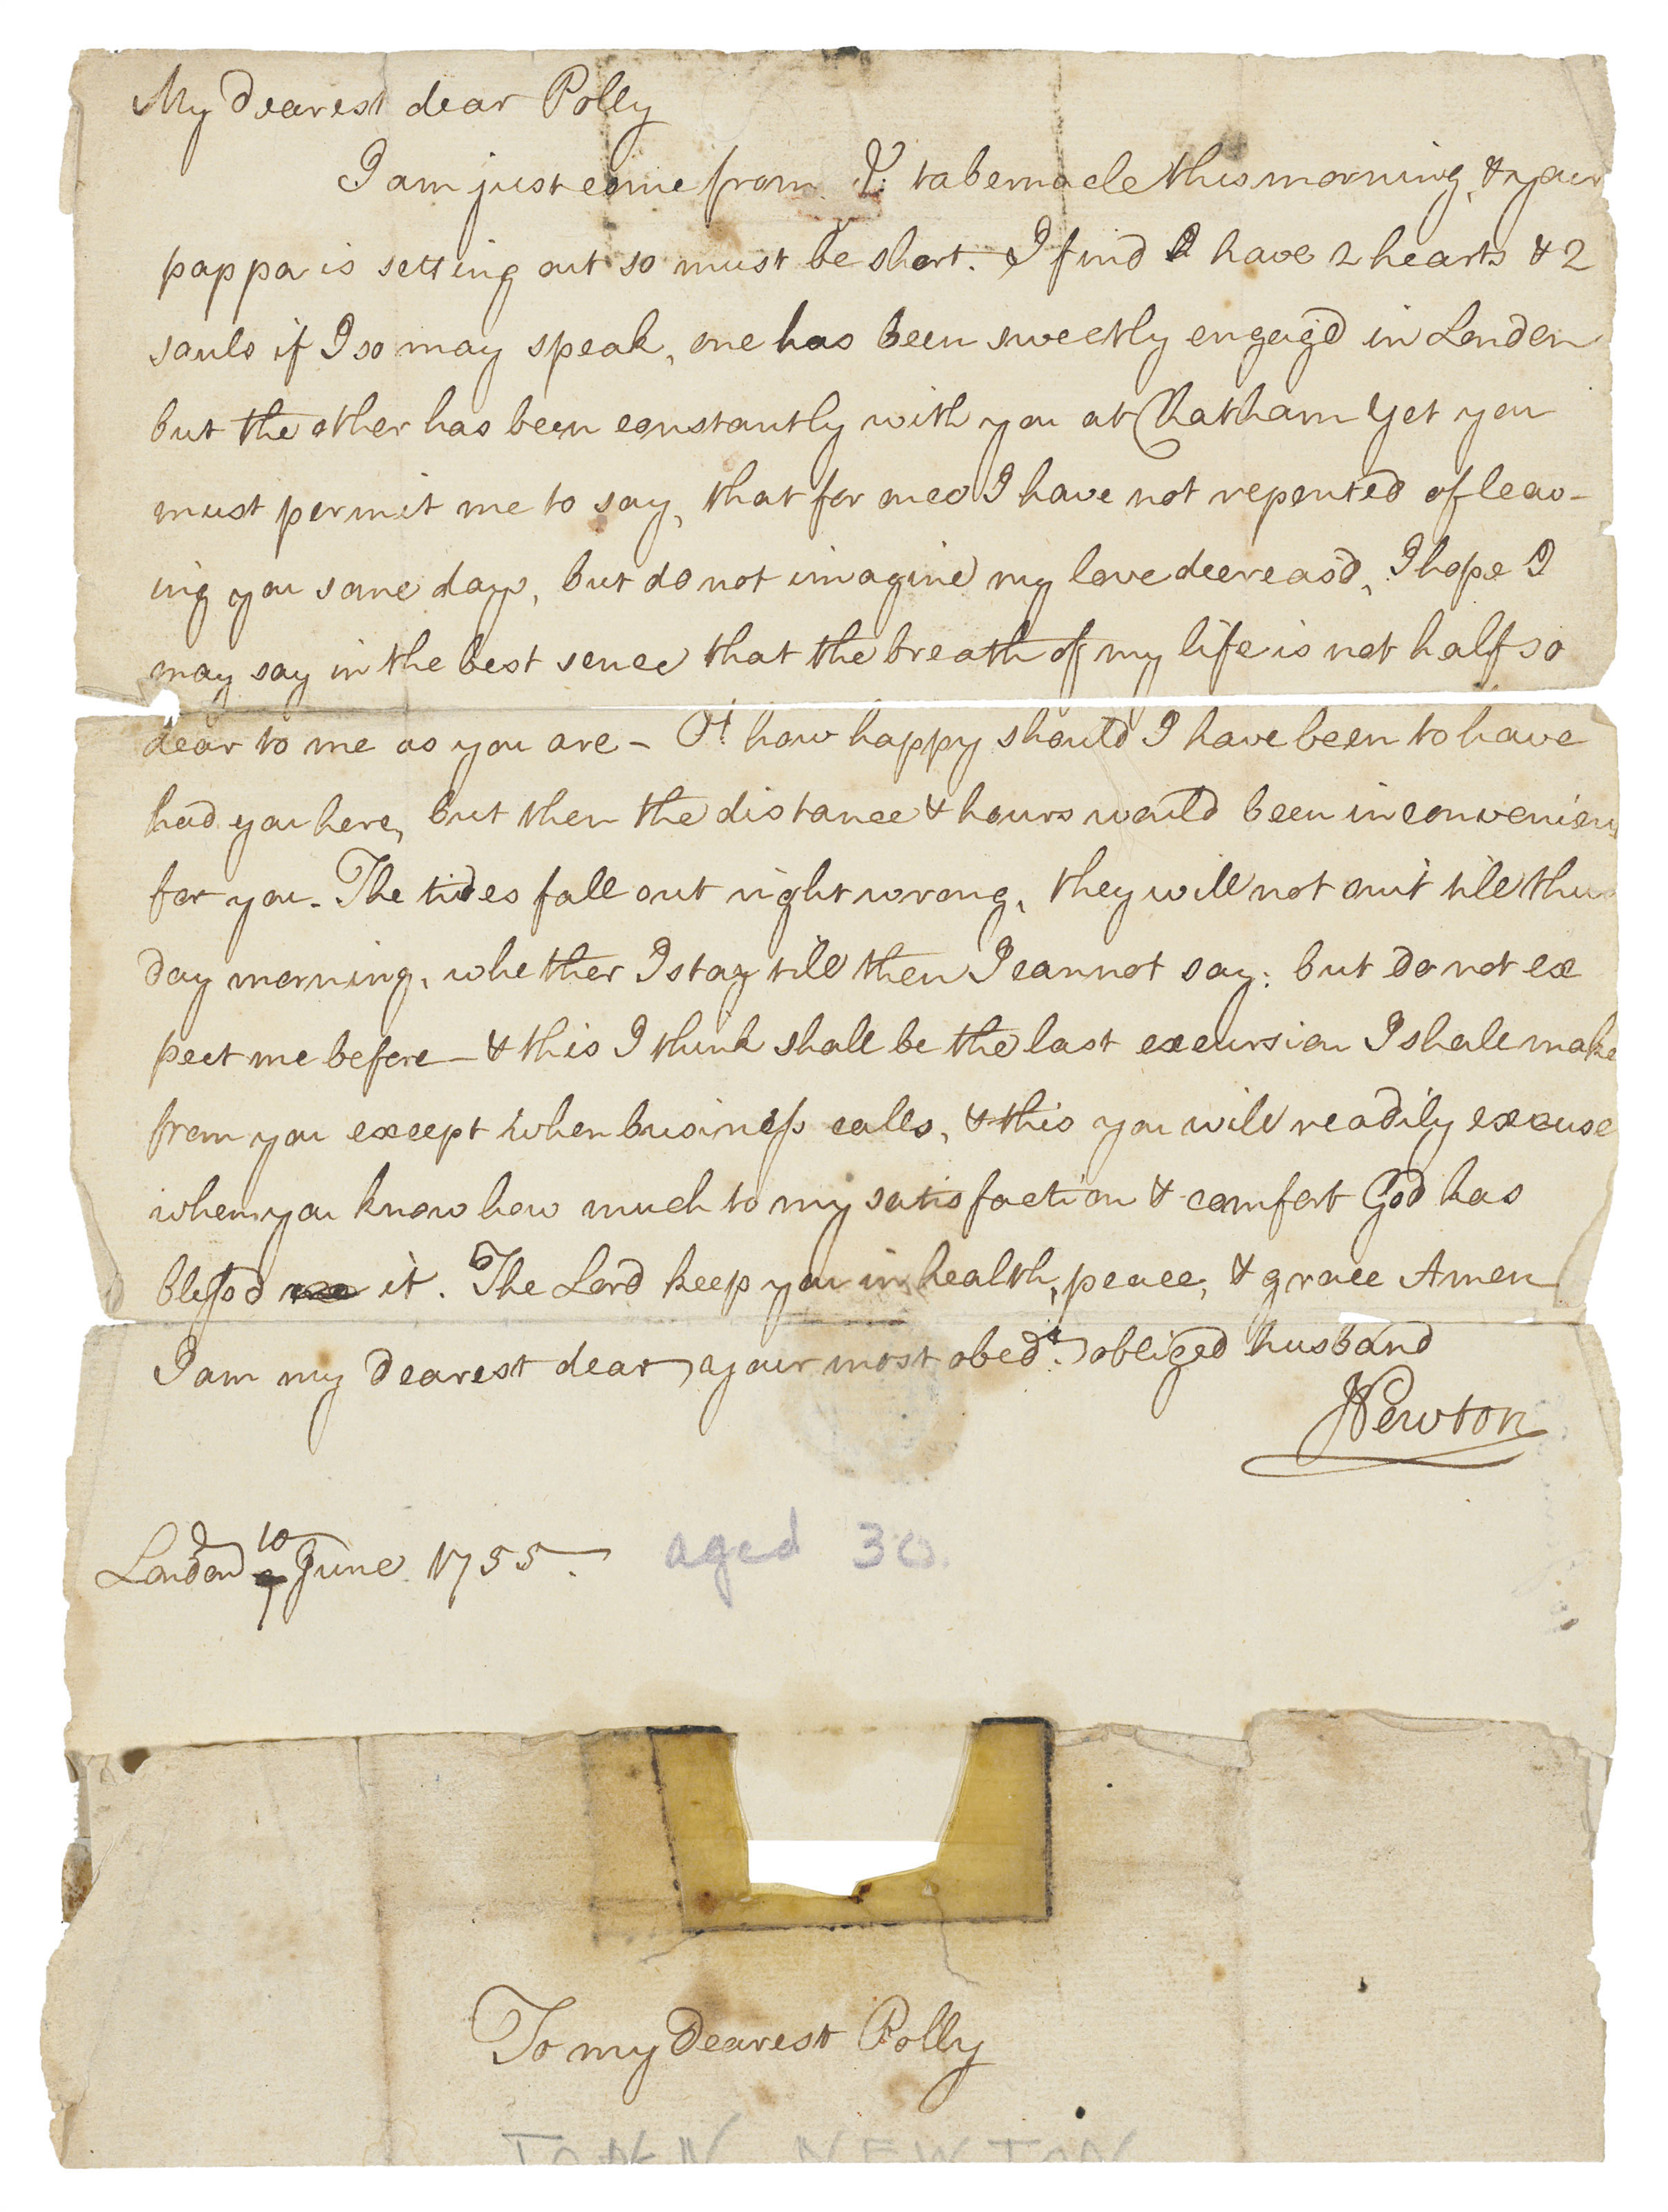 My Dearest dear Polly
I am just come from Ye. tabernacle this morning, & your
pappa is setting out so must be short. I find I have 2 hearts & 2
souls if I so may speak, one has been sweetly engag'd in London
but the other has been constantly with you at Chatham Yet you
must permit me to say, that for once I have not repented of leav-
ing you some days, but do not imagine my love decreas'd, I hope I
may say in the best sence that the breath of my life is not half so
dear to me as you are - O! how happy should I have been to have
had you here, but then the distance & hours would been inconvenien
for you. The tides fall out right wrong, they will not suit till thu
day morning, whether I stay till then I cannot say: but do not ex
pect me before - & this I think shall be the last excursion I shall make
from you except when business calls, & this you will readily excuse
when you know how much to my satisfaction & comfort God has
blessd it. The Lord keep you in health, peace, & grace Amen
I am my Dearest dear, your most obedt. obliged husband
JNewton
London 10 June 1755. aged 30.
To my Dearest Polly
JOHN NEWTON